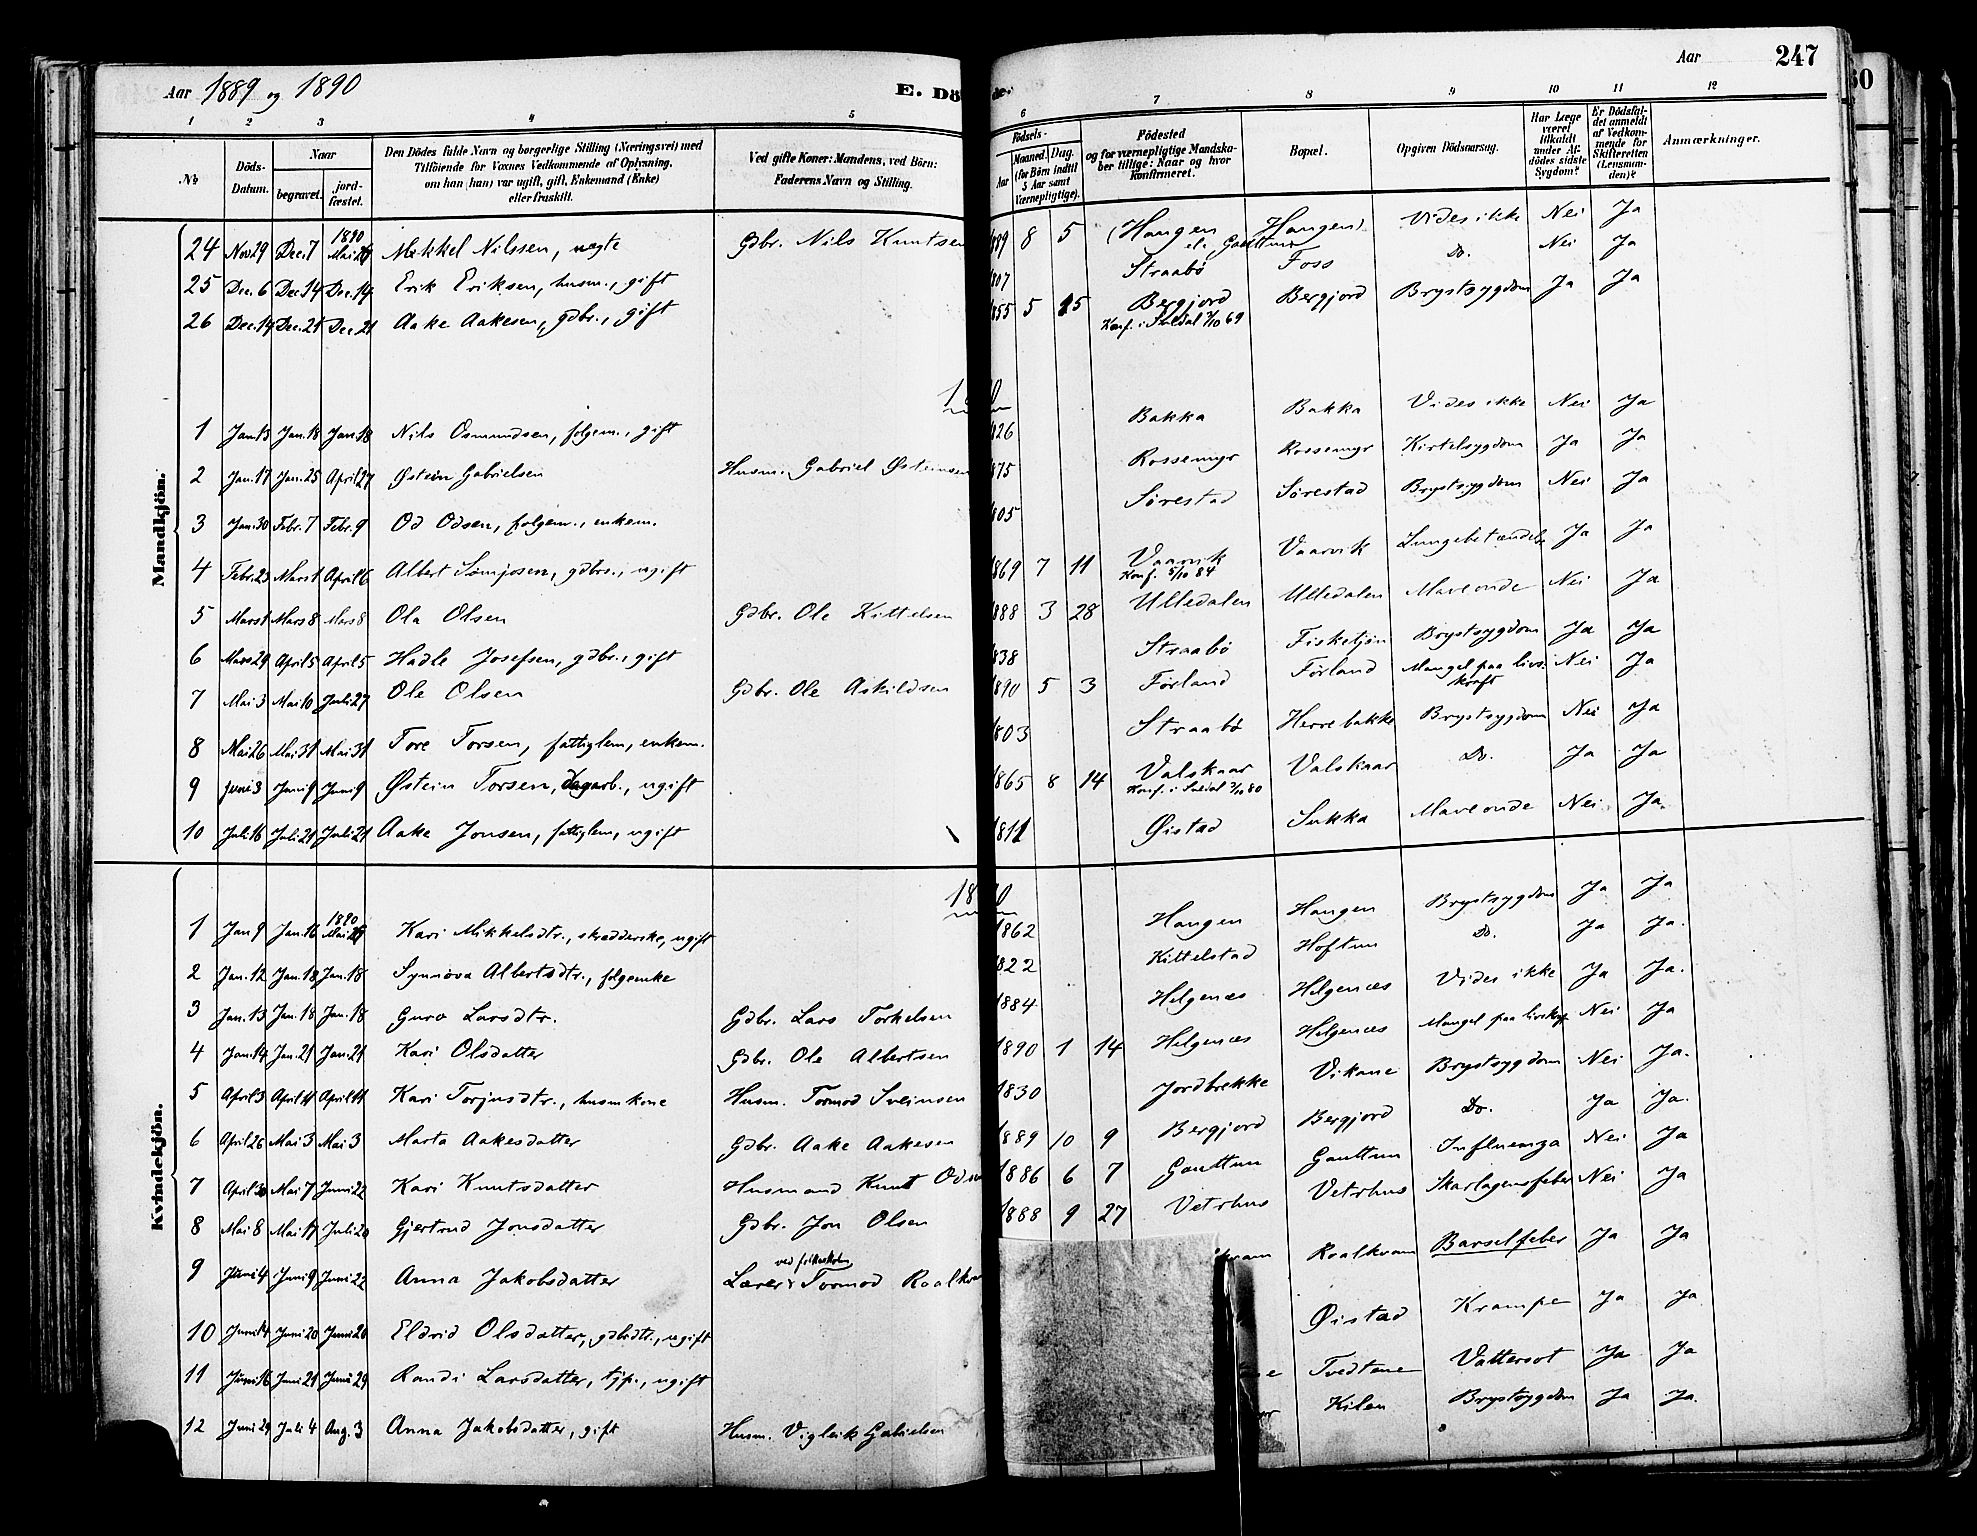 Aar 1889 og 1890
E. Dö
de.
Aar
247
1 2 3 4 5 6 7 8 9 10 11 12
№ Döds-Datum. Naar begravet. jordfæstet. Den Dödes fulde Navn og borgerlige Stilling (Næringsvei) med Tilföiende for Voxnes Vedkommende af Oplysning, om han (hun) var ugift, gift, Enkemand (Enke) eller fraskilt. Ved gifte Koner: Mandens, ved Börn: Faderens Navn og Stilling. Födsels- Aar Maaned. Dag. (for Börn indtil 5 Aar samt Værnepligtige). Födested og for værnepligtige Mandskaber tillige: Naar og hvor Konfirmeret. Bopæl. Opgiven Dödsaarsag. Har Læge været tilkaldt under Afdödes sidste Sygdom? Er Dödsfaldet anmeldt af Vedkommende for Skifteretten (Lensmanden)? Anmærkninger.
Mandkjön.
24 Nov 29 Dec. 7 1890 Mai Mikkel Nilssen, uægte Gdbr. Nils Knutsen 889 8 5 (Haugen Haugen) Vides ikke Nei Ja
25 Dec. 6 Dec 14 Dec. 14 Erik Eriksen, husm., gift 807 Straabö Foss Do. Nei Ja
26 Dec. 14 Dec. 21 Dec 21 Aake Aakesen, gdbr., gift 855 5 15 Bergjord Bergjord Brystsygdom Ja Ja
Konf. i Suldal 3/10 69
1 Jan. 13 Jan. 18 Jan. 18 Nils Osmundsen, folgem., gift 826 Bakka Bakka Vides ikke Nei Ja
2 Jan. 17 Jan. 25 April 27 Østein Gabrielsen Husm. Gabriel Østeinsen 875 Rossemyr Rossemyr Kirtelsygdom Ja Ja
3 Jan. 30 Febr. 7 Febr. 9 Od Odsen, folgem., enkem. 805 Sørestad Sørestad Brystsygdom Nei Ja
4 Febr. 23 Mars 1 April 6 Albert gdbrs., ugift 869 7 11 Vaarvik Vaarvik Lungebetændelse Ja Ja
Konf. 5/10 84
5 Mars 1 Mars 8 Mars 8 Ola Olsen Gdbr. Ole Kittelsen 1888 3 28 Ulledalen Ulledalen Maveonde Nei Ja
6 Mars 29 April 5 April 5 Hadle Josefsen, gdbr., gift 838 Straabö Fisketjön Brystsygdom Ja Ja
7 Mai 3 Mai 10 Juli 27 Ole Olsen Gdbr. Ole Askildsen 1890 5 3 Førland Førland Mangel paa livs- Nei Ja
kraft
8 Mai 26 Mai 31 Mai 31 Tore Torsen, fattiglem, enkem. 1803 Straabö Herrebakke Brystsygdom Nei Ja
9 Juni 3 Juni 9 Juni 9 Østein Torsen, dagarb., ugift 1865 8 14 Valskaar Valskaar Do. Ja Ja
Konf. i Suldal 3/10 80
10 Juli 16 Juli 21 Juli 21 Aake Jonsen, fattiglem, ugift 1811 Øistad Sukka Maveonde Nei Ja
Kvindekjön.
1 Jan 9 Jan. 16 1890 Mai Kari Mikkelsdtr., skrædderske, ugift 1862 Haugen Haugen Brystsygdom Ja Ja
2 Jan. 12 Jan. 18 Jan. 18 Synnöva Albertsdtr., folgenke 1822 Kittelstad Hoftun Do. Ja Ja.
3 Jan. 13 Jan. 18 Jan. 18 Guro Larsdtr. Gdbr. Lars Torkelsen 1884 Helgenæs Helgenæs Vides ikke Ja Ja.
4 Jan. 14 Jan. 21 Jan. 21 Kari Olsdatter Gdbr. Ole Albertsen 1890 1 14 Helgenæs Helgenæs Mangel paa livskraft Nei Ja
5 April 3 April 11 April 11 Kari Torjusdtr., husmkone Husm. Tormod Sveinsen 1830 Jordbrekke Vikane Brystsygdom Nei Ja.
6 April 26 Mai 3 Mai 3 Marta Aakesdatter Gdbr. Aake Aakesen 1889 10 9 Bergjord Bergjord Do. Ja Ja.
7 April 30 Mai 7 Juni 22 Kari Knutsdatter Husmand Knut Odsen 1886 6 7 Gauttun Gauttun Influenza Nei Ja
8 Mai 8 Mai 17 Juli 20 Gjertrud Jonsdatter Gdbr. Jon Olsen 1888 9 27 Vetrhus Vetrhus Skarlagensfeber Nei Ja
9 Juni 4 Juni 9 Juni 22 Anna Jakobsdatter Lærer ved folkeskolen Tormod Roalkvam kvam Roalkvam Barselfeber Ja Ja
10 Juni 14 Juni 20 Juni 20 Eldrid Olsdatter, gdbdtr., ugift Øistad Krampe Ja Ja
11 Juni 16 Juni 21 Juni 29 Randi Larsdatter, tjp., ugift Tvedtane Vattersot Ja Ja
12 Juni 29 Juli 4 Aug. 3 Anna Jakobsdatter, gift Husm. Vigleik Gabrielsen Kilen Brystsygdom Ja Ja.